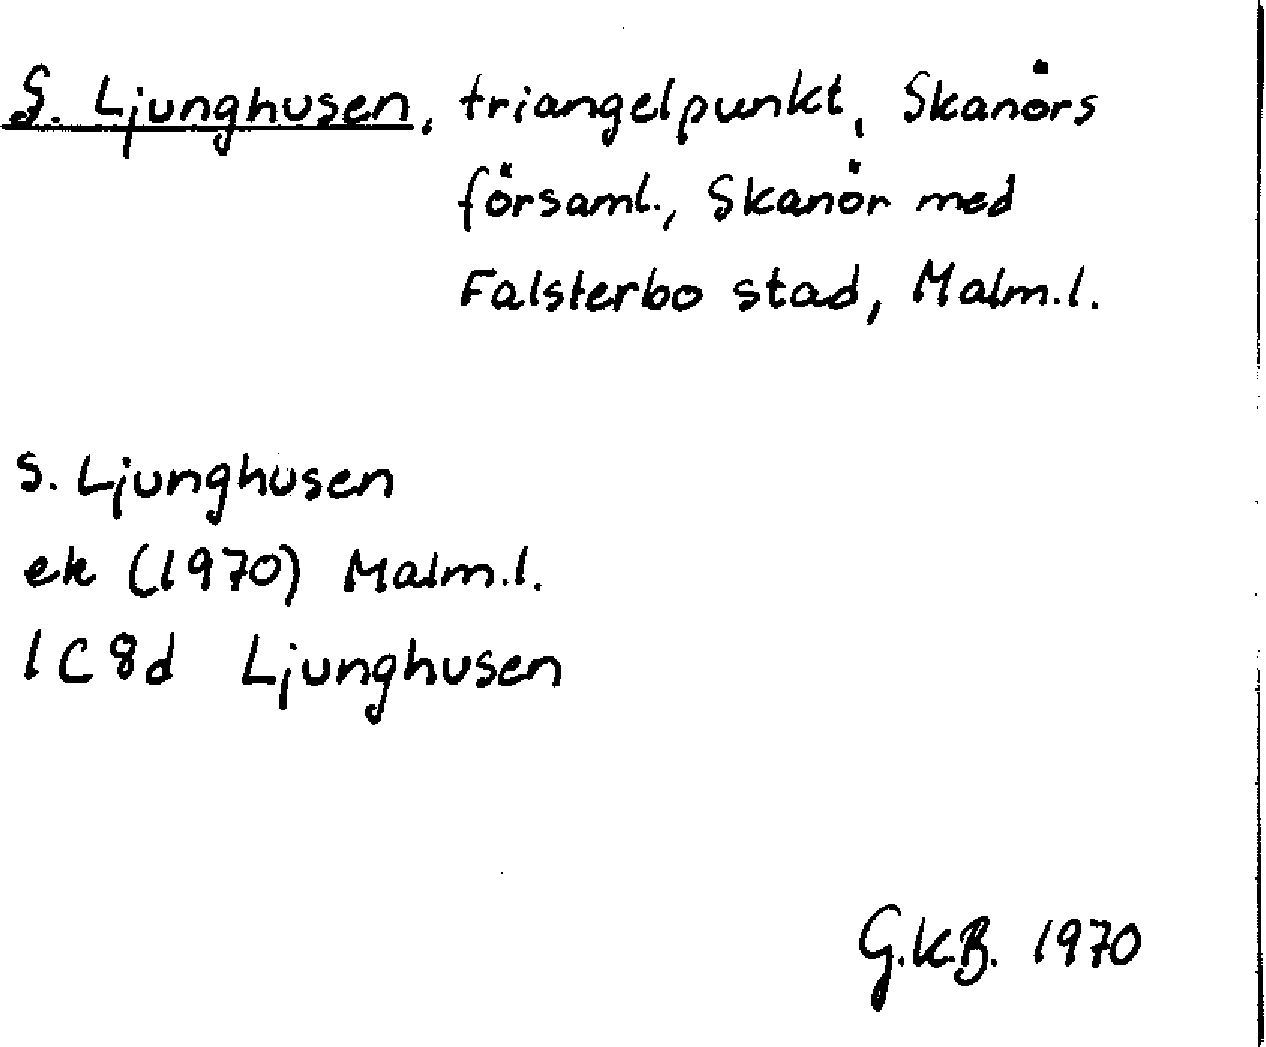 S. Ljunghusen, triangelpunkt, Skanörs
församl., Skanör med
Falsterbo stad, Malm.l.
S. Ljunghusen
ek (1970) Malm.l.
1C8d Ljunghusen
G.K.B. 1970